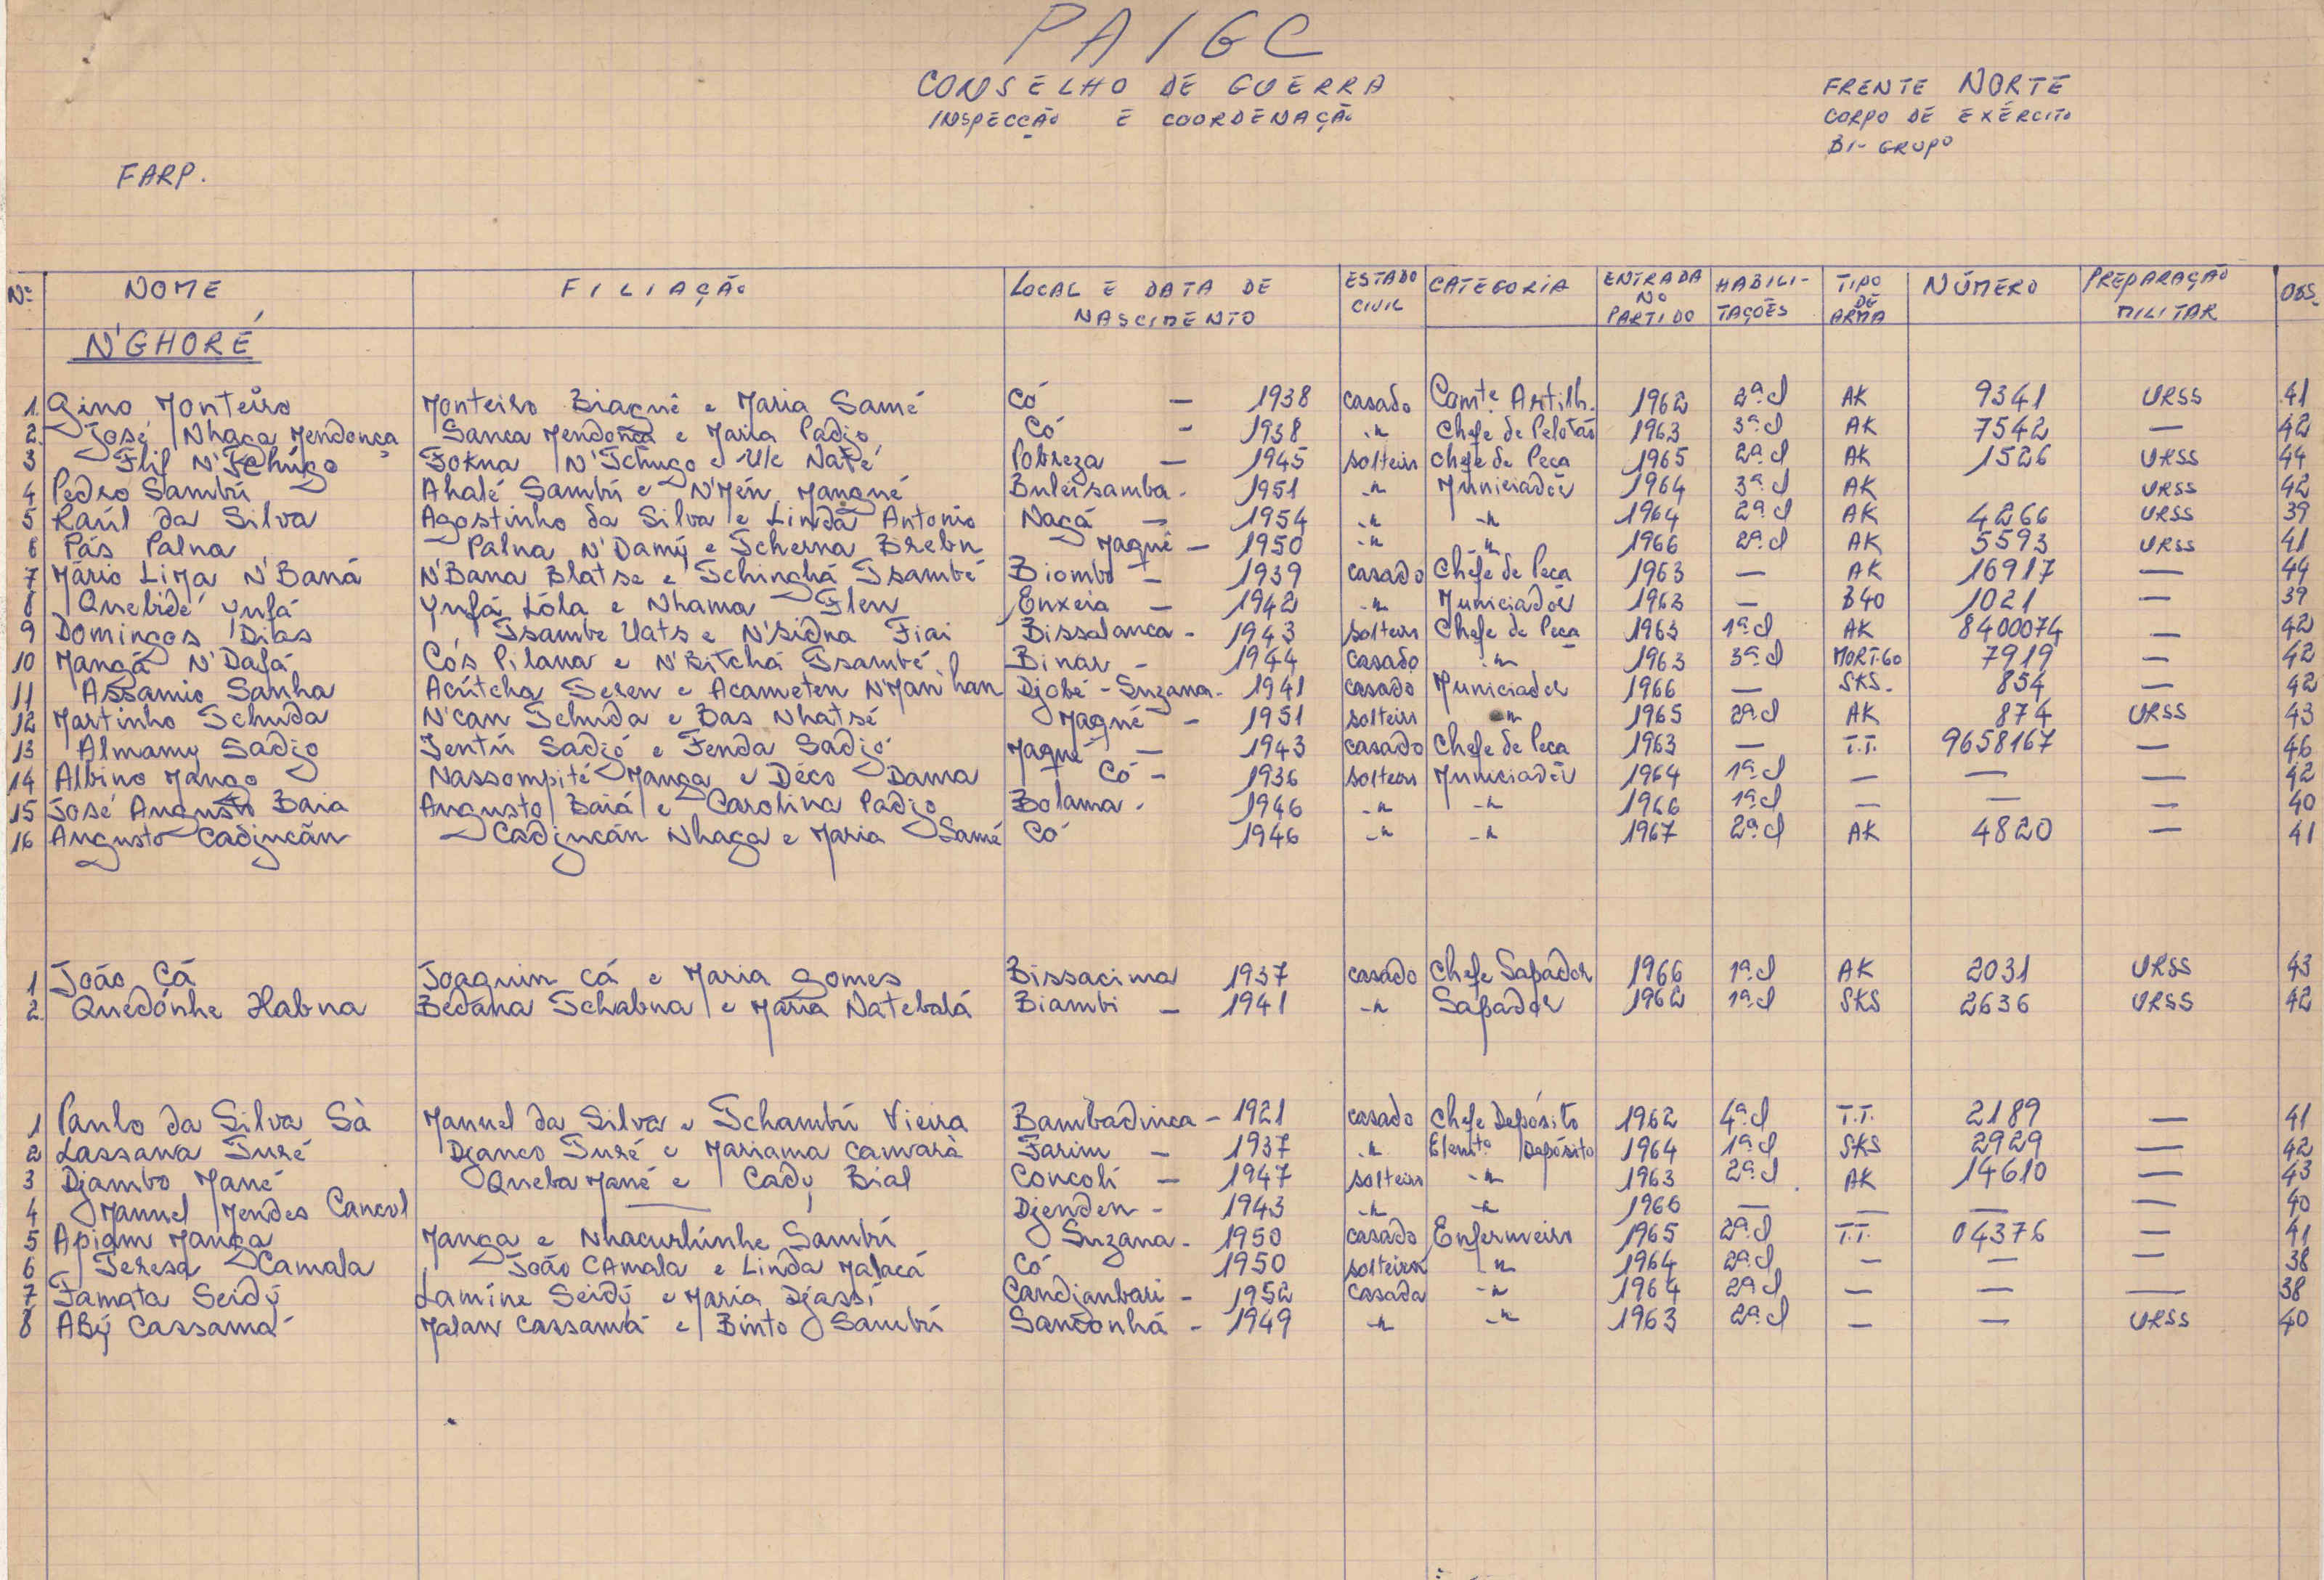 PAIGC
CONSELHO DE GUERRA
INSPECÇÃO E COORDENAÇÃO
FRENTE NORTE
CORPO DE EXÉRCITO
BI-GRUPO
FARP.
Nº NOME FILIAÇÃO LOCAL E DATA DE NASCIMENTO ESTADO CIVIL CATEGORIA ENTRADA NO PARTIDO HABILITAÇÕES TIPO DE ARMA NÚMERO PREPARAÇÃO MILITAR OBS.
N'GHORÉ
1. Gino Monteiro Monteiro Biagnê e Maria Samé Có — 1938 casado Comte. Artilh. 1962 2ª.cl AK 9341 URSS 41
2. José Nhaga Mendonça Sanca Mendonça e Maria Padjo Có — 1938 -"- Chefe de Pelotão 1963 3ª.cl AK 7542 — 42
3 Flif N'Tchugo Fokna N'Tchugo e U/c Naté Pobreza — 1945 solteiro chefe de Peça 1965 2ª.cl AK 1526 URSS 44
4 Pedro Sambú Ahalé Sambú e N'Mén Mangné Buleisamba - 1951 -"- Municiador 1964 3ª.cl AK URSS 42
5 Raúl da Silva Agostinho da Silva e Linda Antonio Nagá — 1954 -"- -"- 1964 2ª.cl AK 4266 URSS 39
6 Pás Palna Palna N'Damý e Tcherna Brebn Maqué — 1950 -"- -"- 1966 2ª.cl AK 5593 URSS 41
7 Mário Lima N'Baná N'Bana Blatse e Tchinchá Tsambé Biombo — 1939 casado Chefe de Peça 1963 — AK 16917 — 44
8 Quebidé Yufá Yufá Lóla e Nhama Flen Enxeia — 1942 -"- Municiador 1963 — B40 1021 — 39
9 Domingos Dias Tsambe Uats e N'Sidna Fiai Bissalanca - 1943 solteiro Chefe de Peça 1963 1ª.cl AK 8400074 — 42
10 Mangá N'Dafá Cós Pilana e N'Bitchá Tsambé Binar — 1944 casado -"- 1963 3ª.cl MORT.60 7919 — 42
11 Assamio Sanha Acútcha Seren e Acameten N'Man'han Djobé - Suzana - 1941 casado Municiador 1966 — SKS. 854 — 42
12 Martinho Tchuda N'can Tchuda e Bas Nhatsé Maqué — 1951 solteiro -"- 1965 2ª.cl AK 874 URSS 43
13 Almamy Sadjo Jentú Sadjó e Fenda Sadjó Maqué — 1943 casado Chefe de Peça 1963 — T.T. 9658167 — 46
14 Albino Mango Nassompité Manga e Déco Dama Có — 1936 solteiro Municiador 1964 1ª.cl — — — 42
15 José Augusto Baia Augusto Baiá e Carolina Padjo Bolama . 1946 -"- -"- 1966 1ª.cl — — — 40
16 Augusto Cadjucãn Cadjucán Nhaga e Maria Samé Có 1946 -"- -"- 1967 2ª.cl AK 4820 — 41
1 João Cá Joaquim Cá e Maria Gomes Bissacima 1937 casado Chefe Sapador 1966 1ª.cl AK 2031 URSS 43
2. Quedónhe Habna Bedana Tchabna e Maria Natebalá Biambi — 1941 -"- Sapador 1962 1ª.cl SKS 2636 URSS 42
1 Paulo da Silva Sà Manuel da Silva e Tchambú Vieira Bambadinca — 1921 casado Chefe Depósito 1962 4ª.cl T.T. 2189 — 41
2 Lassana Turé Djanco Turé e Mariama Camará Farim — 1937 -"- Elemto. Depósito 1964 1ª.cl SKS 2929 — 42
3 Djambo Mané Queba Mané e Cady Bial Concoli — 1947 solteiro -"- 1963 2ª.cl AK 14610 — 43
4 Manuel Mendes Cancol — Djenden - 1943 -"- -"- 1966 — — — — 40
5 Apiam Manga Manga e Nhacurhúnhe Sambú Suzana - 1950 casado Enfermeiro 1965 2ª.cl T.T. 04376 — 41
6 Teresa Camala João CAmala e Linda Malacá Có 1950 solteira -"- 1964 2ª.cl — — — 38
7 Famata Seidý Lamine Seidý e Maria Djassi Candjanbari - 1952 casada -"- 1964 2ª.cl — — — 38
8 ABý Cassamá Malan Cassamá e Binto Sambú Sansonhá - 1949 -"- -"- 1963 2ª.cl — — URSS 40